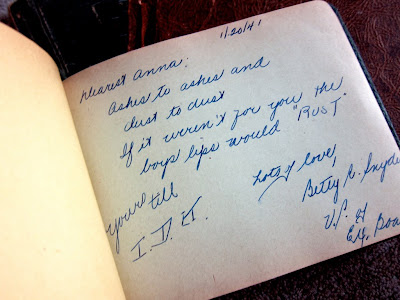 1/20/41
Dearest Anna:
Ashes to ashes and
dust to dust
If it weren't for you the
boys lips would "RUST".
Lots of love,
Betty Snyder
V.P. of
Ex. Boa
yours till